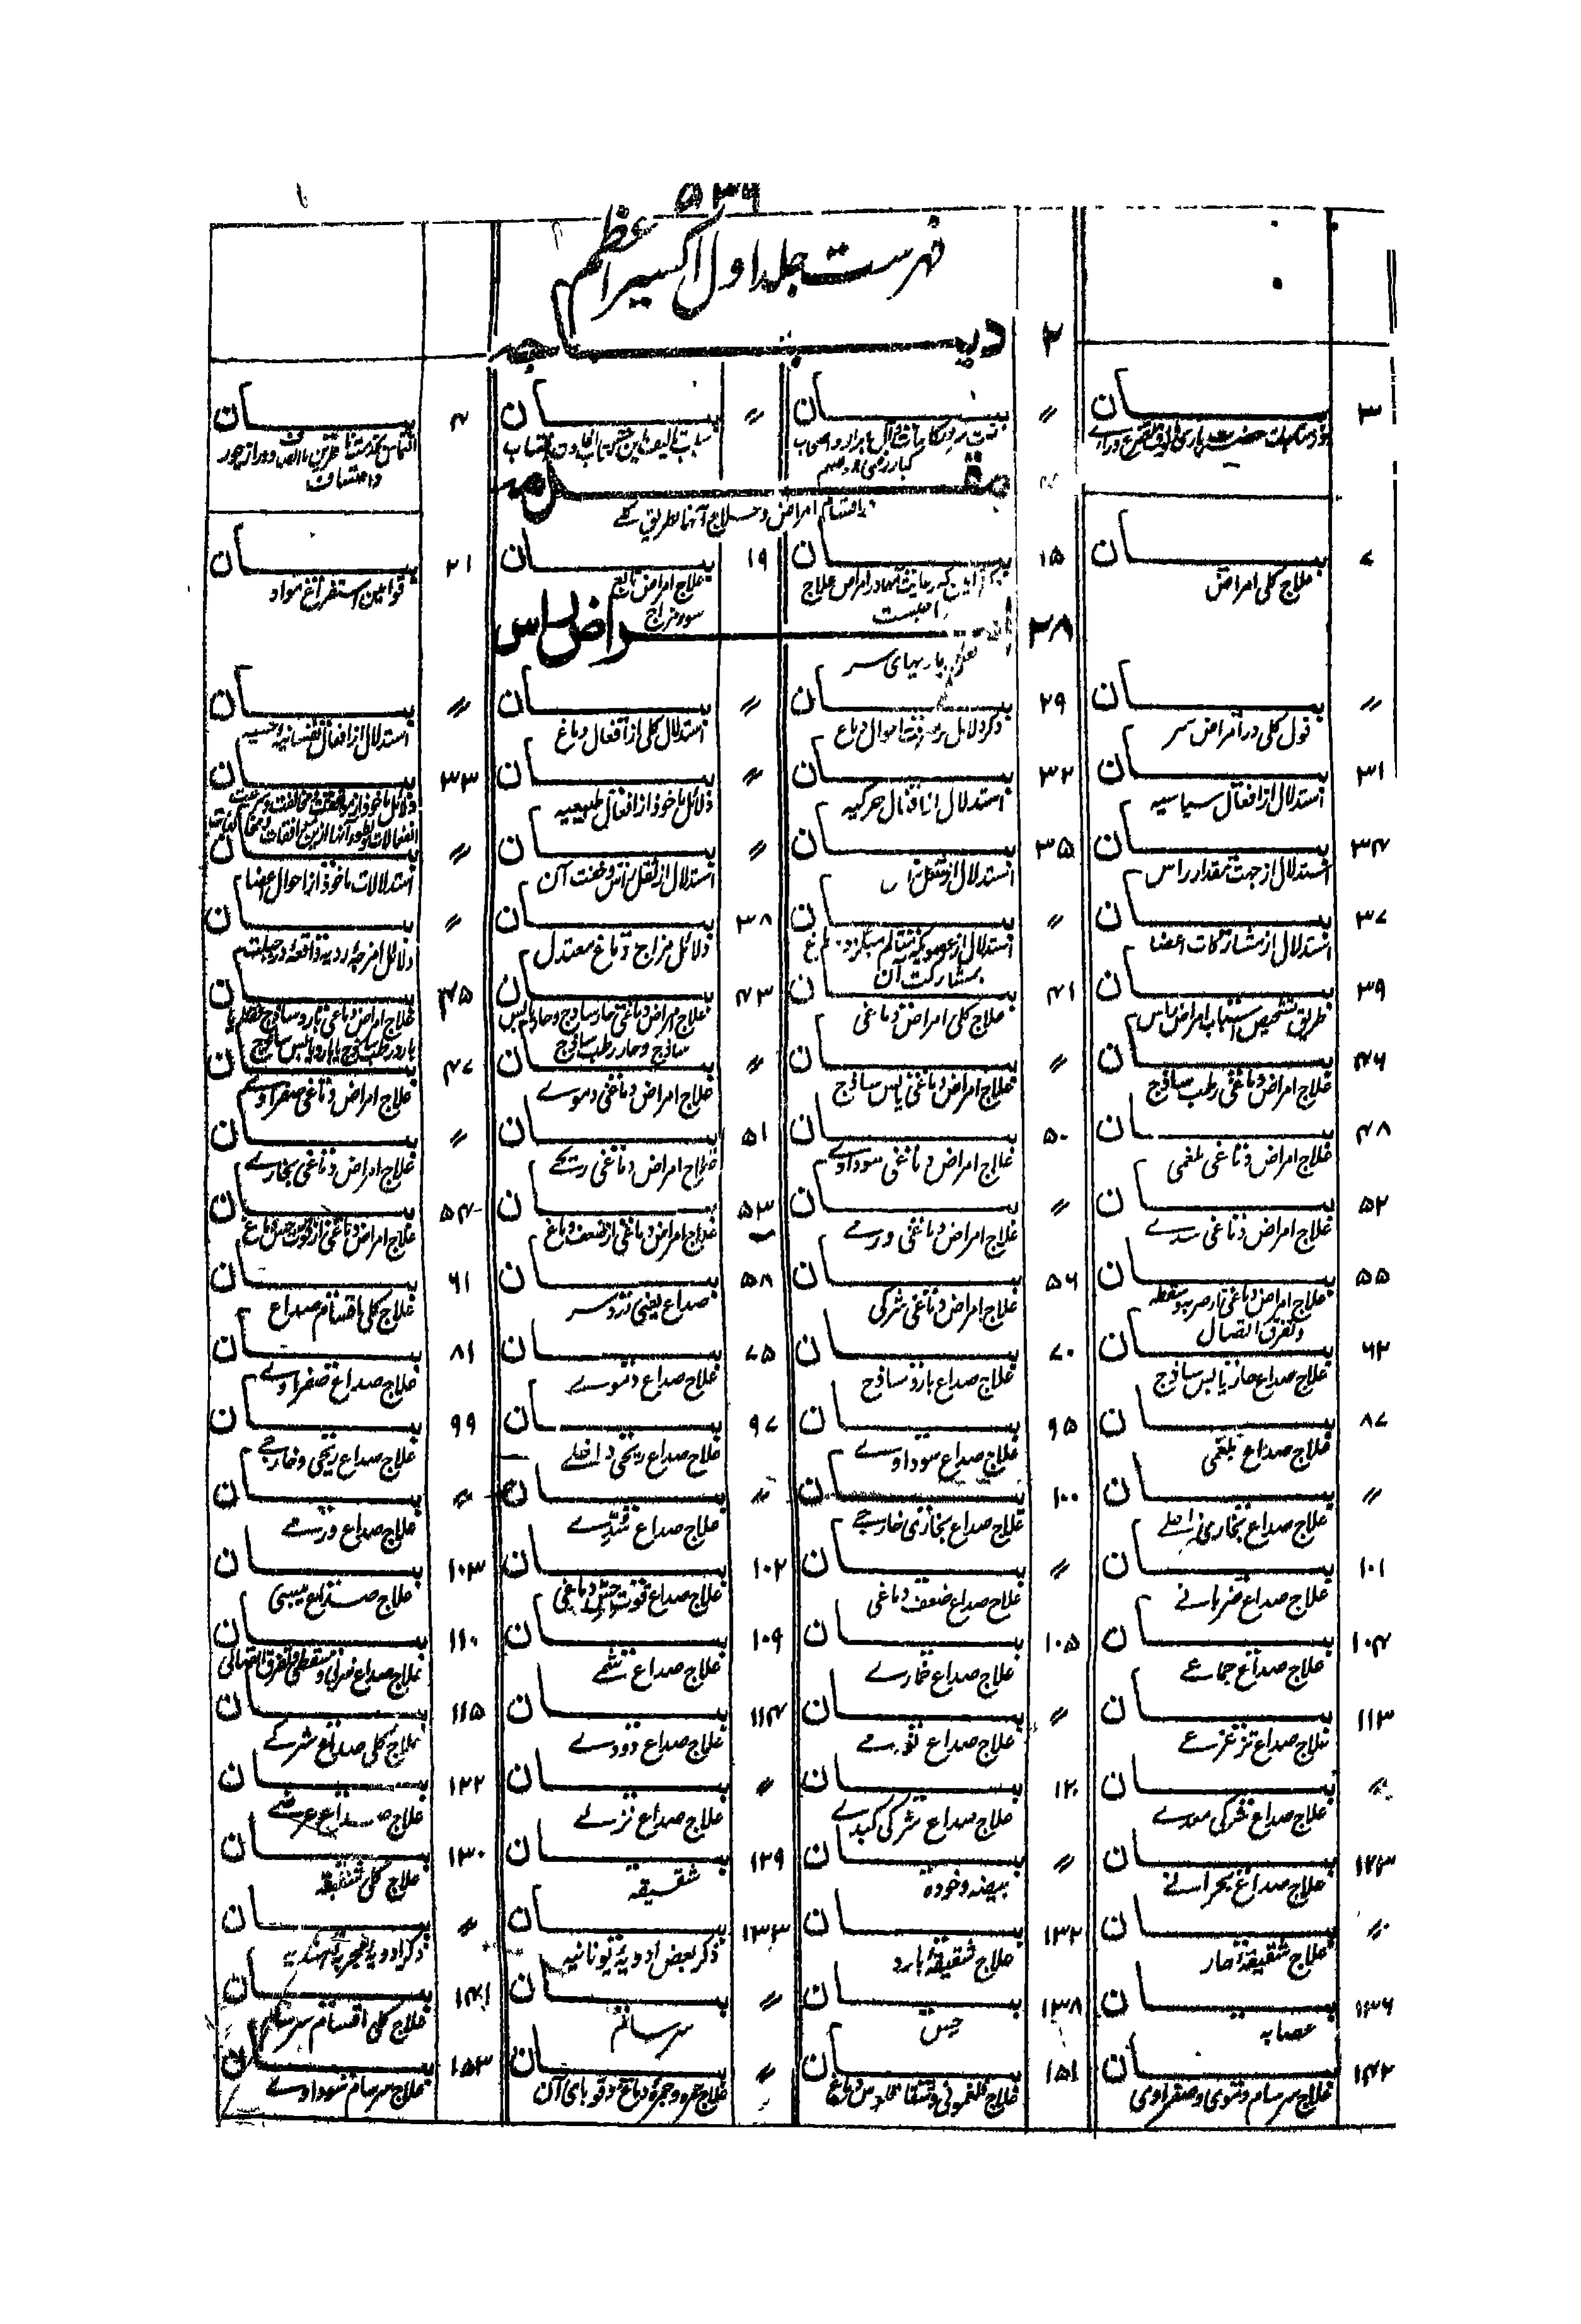 ۵۳۹
فهرست جلد اول اکسیر اعظم
۲ دیباجه
۳ بیان
〃 بیان
〃 بیان
۴ بیان
مقدمه
باقسام امراض و علاج آنها بطریق کلے
۷ بیان علاج کلی امراض
۱۵ بیان
۱۹ بیان علاج امراض تابع سوء مزاج
۲۱ بیان قوانین استفراغ مواد
۲۸ امراض راس
یعنی بیماریهای سر
〃 بیان قول کلی در امراض سر
۲۹ بیان ذکر دلایل معرفت احوال دماغ
〃 بیان استدلال کلی از افعال دماغ
〃 بیان استدلال از افعال نفسانیه حسیه
۳۱ بیان استدلال از افعال سیاسیه
۳۲ بیان استدلال از افعال حرکیه
〃 بیان دلائل ماخوذ از افعال طبیعیه
۳۳ بیان
۳۴ بیان استدلال از جهت مقدار راس
۳۵ بیان استدلال از شکل راس
〃 بیان استدلال از ثقل راس و خفت آن
〃 بیان استدلالات ماخوذ از احوال اعضا
۳۷ بیان استدلال از مشارکات اعضا
〃 بیان استدلال از عضویکه متالم میگردد دماغ بمشارکت آن
۳۸ بیان دلائل مزاج دماغ معتدل
〃 بیان دلائل امزجهٔ ردیه واقعه در جبلت
۳۹ بیان طریق تشخیص اسباب امراض راس
۴۱ بیان علاج کلی امراض دماغی
۴۳ بیان علاج امراض دماغی حار ساذج و حار یابس ساذج و حار رطب ساذج
۴۵ بیان علاج امراض دماغی بارد ساذج
۴۶ بیان علاج امراض دماغی رطب ساذج
〃 بیان علاج امراض دماغی یابس ساذج
〃 بیان علاج امراض دماغی دموے
۴۷ بیان علاج امراض دماغی صفراوے
۴۸ بیان علاج امراض دماغی بلغمی
۵۰ بیان علاج امراض دماغی سوداوے
۵۱ بیان علاج امراض دماغی ریحے
〃 بیان علاج امراض دماغی بخارے
۵۲ بیان علاج امراض دماغی سدے
〃 بیان علاج امراض دماغی ورمے
۵۳ بیان علاج امراض دماغی از ضعف دماغ
۵۴ بیان علاج امراض دماغی از قوت حس دماغ
۵۵ بیان علاج امراض دماغی از ضربه و سقطه و تفرق اتصال
۵۶ بیان علاج امراض دماغی شرکی
۵۸ بیان صداع یعنی درد سر
۶۱ بیان علاج کلی اقسام صداع
۶۳ بیان علاج صداع حار یابس ساذج
۷۰ بیان علاج صداع بارد ساذج
۷۵ بیان علاج صداع دموے
۸۱ بیان علاج صداع صفراوے
۸۷ بیان علاج صداع بلغمی
۹۵ بیان علاج صداع سوداوے
۹۷ بیان علاج صداع ریحی داخلے
۹۹ بیان علاج صداع ریحی و خارجے
〃 بیان علاج صداع بخاری داخلے
۱۰۰ بیان علاج صداع بخاری خارجے
〃 بیان علاج صداع سدے
〃 بیان علاج صداع ورمے
۱۰۱ بیان علاج صداع ضربانے
〃 بیان علاج صداع ضعف دماغی
۱۰۲ بیان علاج صداع قوت حس دماغی
۱۰۳ بیان علاج صداع یبسی
۱۰۴ بیان علاج صداع جماعے
۱۰۵ بیان علاج صداع خمارے
۱۰۹ بیان علاج صداع شمے
۱۱۰ بیان علاج صداع ضربی و سقطی و تفرق اتصالی
۱۱۳ بیان علاج صداع تزعزعے
〃 بیان علاج صداع نومے
۱۱۴ بیان علاج صداع دودے
۱۱۵ بیان علاج کلی صداع شرکے
〃 بیان علاج صداع شرکی معدے
۱۲۰ بیان علاج صداع شرکی کبدے
〃 بیان علاج صداع نزلے
۱۲۲ بیان علاج صداع عرضے
۱۲۳ بیان علاج صداع بحرانے
〃 بیان بیضه و خوده
۱۲۹ بیان شقیقه
۱۳۰ بیان علاج کلی شقیقه
〃 بیان علاج شقیقهٔ حار
۱۳۲ بیان علاج شقیقهٔ بارد
۱۳۳ بیان ذکر بعض ادویهٔ یونانیه
〃 بیان ذکر ادویهٔ مجربه هندیه
۱۳۶ بیان عصابه
۱۳۸ بیان
〃 بیان سرسام
۱۴۱ بیان علاج کلی اقسام سرسام
۱۴۲ بیان علاج سرسام دموی و صفراوی
۱۵۱ بیان علاج فلغمونی و سقاقلوس دماغ
〃 بیان علاج حمره و جمرهٔ دماغ و قوبای آن
۱۵۳ بیان علاج سرسام سوداوے